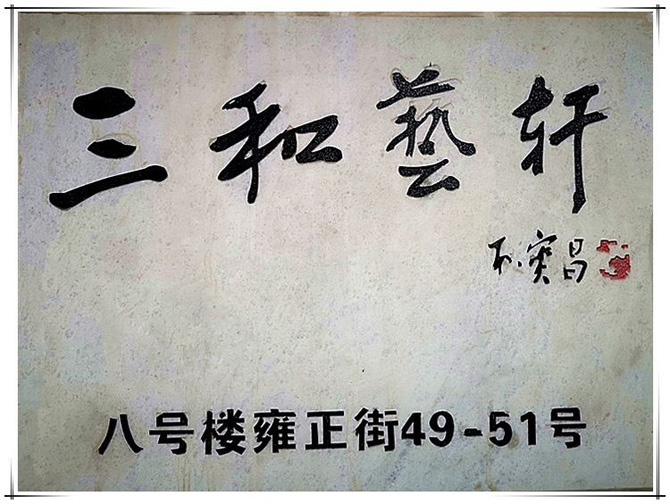 三和藝轩
耿寳昌
八号楼雍正街49-51号